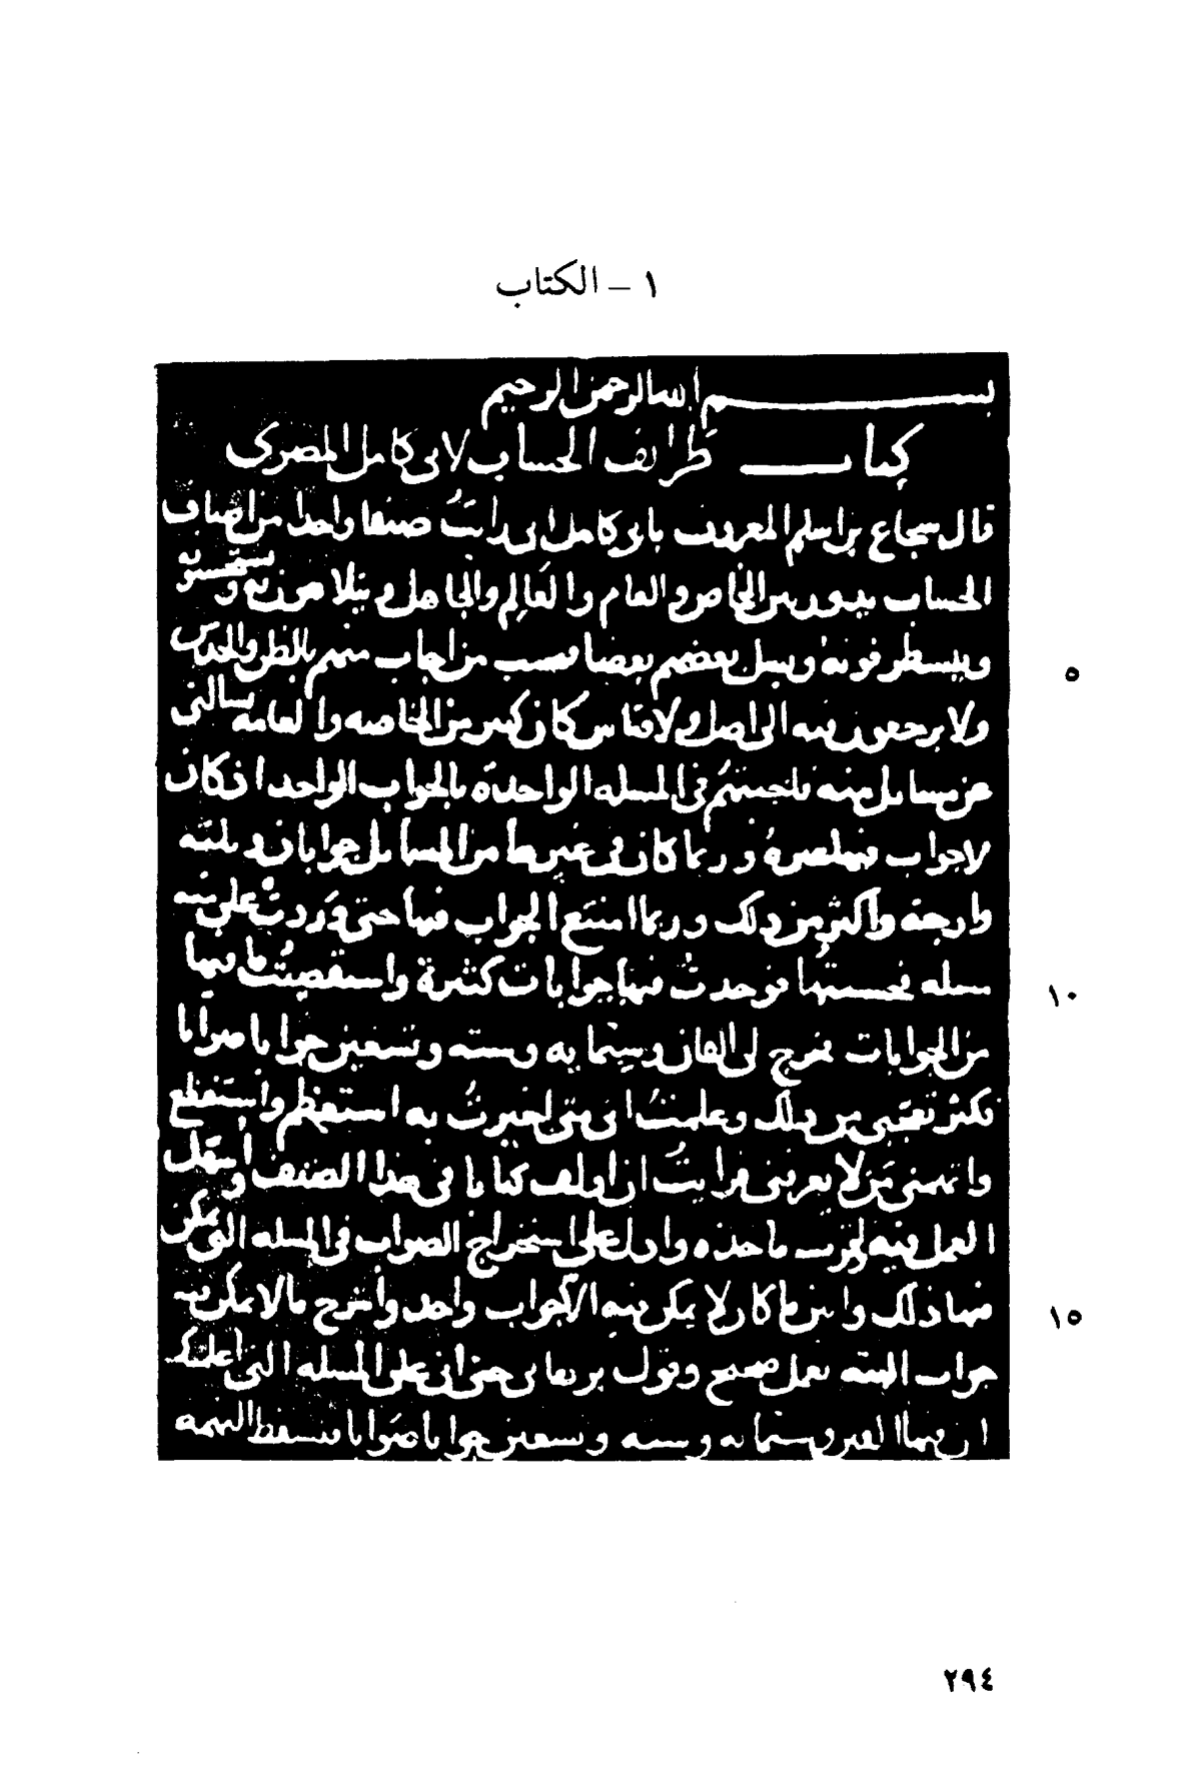 ١ – الكتاب
بسم الله الرحمن الرحيم
كتاب طرائف الحساب لابى كامل المصرى
قال شجاع بن اسلم المعروف بابى كامل انى رايتُ صنفا واحدا من اصناف
الحساب يدور بين الخاص والعام والعالم والجاهل ويتلاهون به ويستحسنونه
ويسل بعضهم بعضا فيجيب من اجاب منهم بالظن والحدس
٥
ولا يرجعون فيه الى اصل ولا قياس كان كثير من الخاصه والعامه يسالنى
عن مسايل منه فاجيبهم فى المسله الواحدة بالجواب الواحد اذ كان
لا جواب فيها غيره وربما كان فى غيرها من المسايل جوابان وثلثه
واربعة واكثر من ذلك وربما امتنع الجواب فيها حتى وردت على منه
مسله فحسبتها فوجدت فيها جوابات كثيرة واستقصيتُ ما فيها
١٠
من الجوابات فخرج لى الفان وستمايه وسته وتسعين جوابا صوابا
فكثر تعجبى من ذلك وعلمتُ انى متى اخبرتُ به استعظم واستفظع
واتهمنى من لا يعرفنى فرايتُ ان اولف كتابا فى هذا الصنف واسهل
العمل فيه ليقرب ماخذه وادل على استخراج الصواب فى المسله التى يمكن
فيها ذلك وابين ما كان لا يمكن فيه الا جواب واحد واشرح ما لا يمكن فيه
١٥
جواب البته بعمل صحيح وقول برهانى حتى اتى على المسله التى اعلمتك
ان فيها الفين وستمايه وسته وتسعين جوابا صوابا فتسقط التهمه
٢٩٤